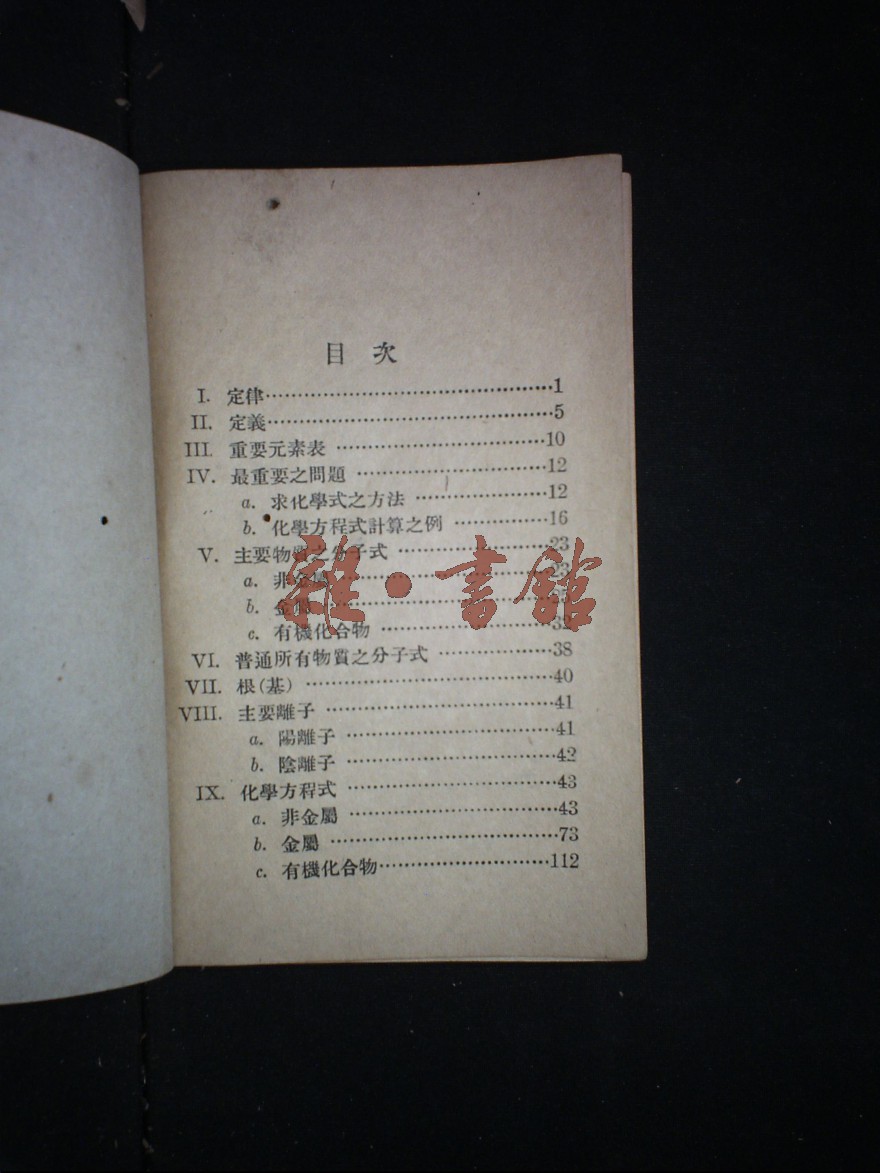 目次
I. 定律…………1
II. 定義…………5
III. 重要元素表…………10
IV. 最重要之問題…………12
a. 求化學式之方法…………12
b. 化學方程式計算之例…………16
V. 主要物質之分子式…………23
a. 非金屬…………23
b. 金屬…………
c. 有機化合物…………32
VI. 普通所有物質之分子式…………38
VII. 根(基)…………40
VIII. 主要離子…………41
a. 陽離子…………41
b. 陰離子…………42
IX. 化學方程式…………43
a. 非金屬…………43
b. 金屬…………73
c. 有機化合物…………112
雜·書館